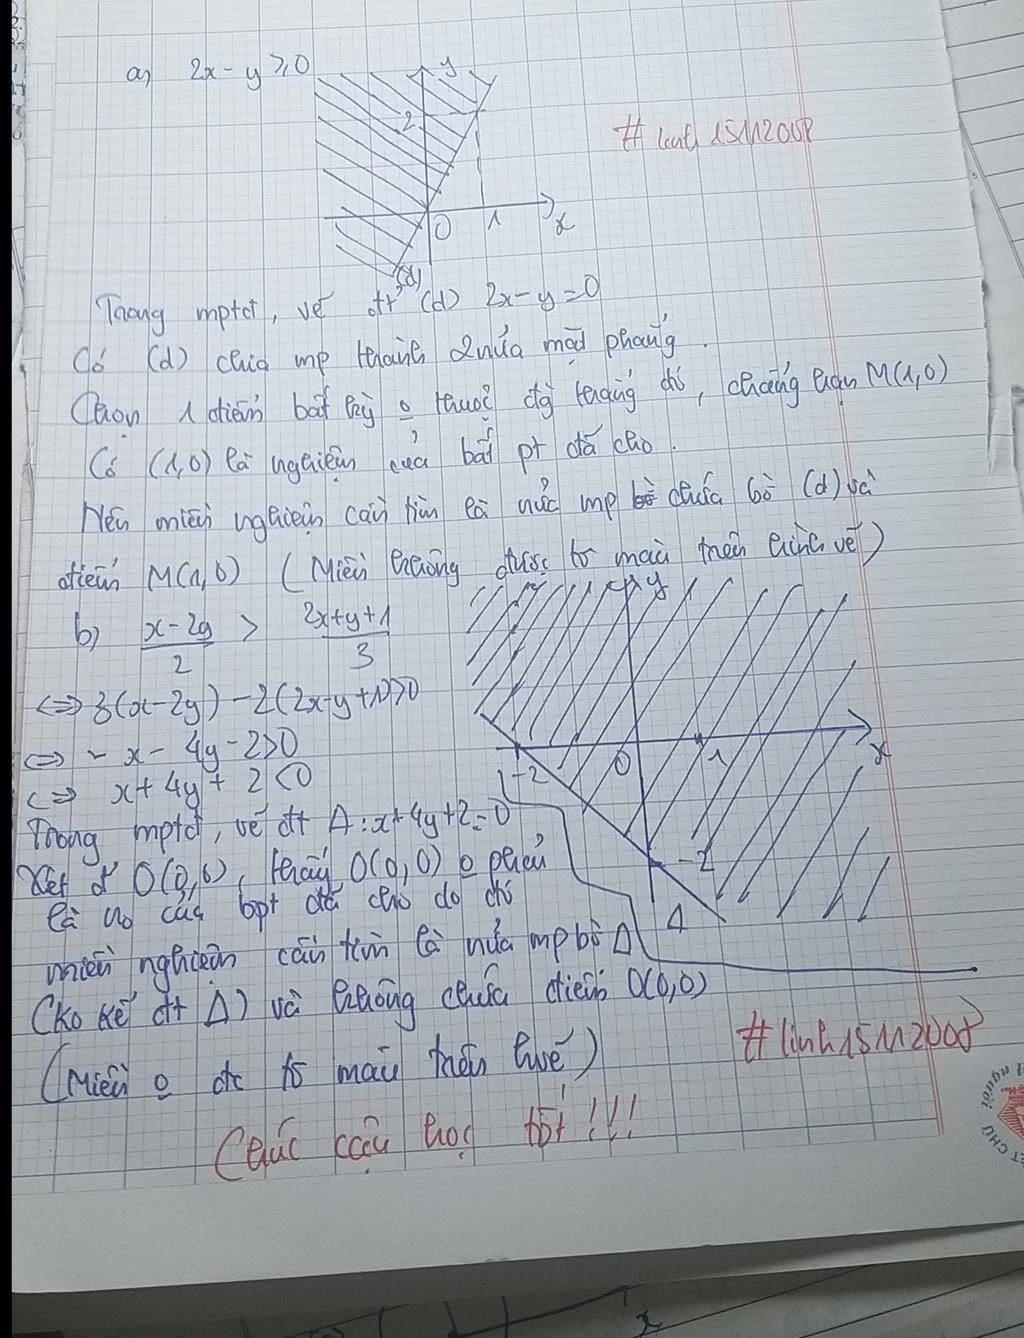 a) 2x - y ≥ 0
y
2
0 1 x
(d)
# linh 15112008
Trong mptđ, vẽ đt (d) 2x - y = 0
Có (d) chia mp thành 2 nửa mặt phẳng.
Chọn 1 điểm bất kỳ o thuộc đg thẳng đó, chẳng hạn M(1,0)
Có (1,0) là nghiệm của bất pt đã cho.
Nên miền nghiệm cần tìm là nửa mp chứa bờ (d) và
điểm M(1,0) (Miền không được tô màu trên hình vẽ)
b) x-2y/2 > 2x+y+1/3
<=> 3(x-2y) - 2(2x-y+1)>0
<=> - x - 4y - 2>0
<=> x + 4y + 2 <0
Trong mptđ, vẽ đt Δ: x+4y+2=0
Xét đ' O(0,0), thấy O(0,0) o phải
là no của bpt đã cho do đó
miền nghiệm cần tìm là nửa mp bờ Δ
(Ko kể đt Δ) và không chứa điểm O(0,0)
(Miền o đc tô màu trên hvẽ)
y
-2 0 1 x
Δ
# linh15112008
Chúc cậu học tốt!!!
x